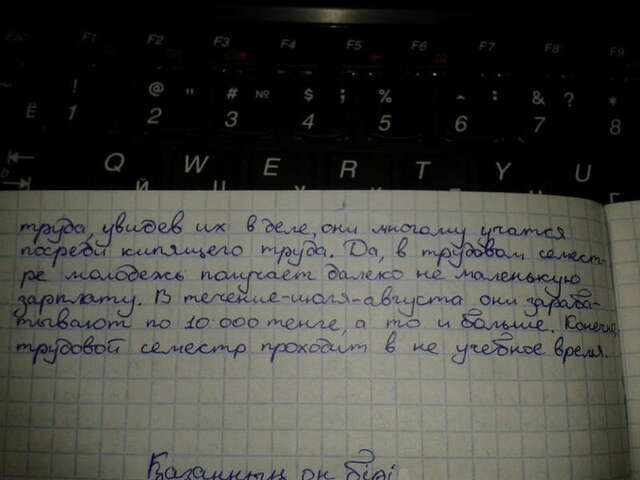 Esc F1 F2 F3 F4 F5 F6 F7 F8 F9
! @ " # № $ ; % : & ? *
Ё 1 2 3 4 5 6 7 8
Q W E R T Y U
труда, увидев их в деле, они многому учатся
посреди кипящего труда. Да, в трудовом семест-
ре молодежь получает далеко не маленькую
зарплату. В течение июля-августа они зараба-
тывают по 10 000 тенге, а то и больше. Конечно,
трудовой семестр проходит в не учебное время.
Қазанның он бірі